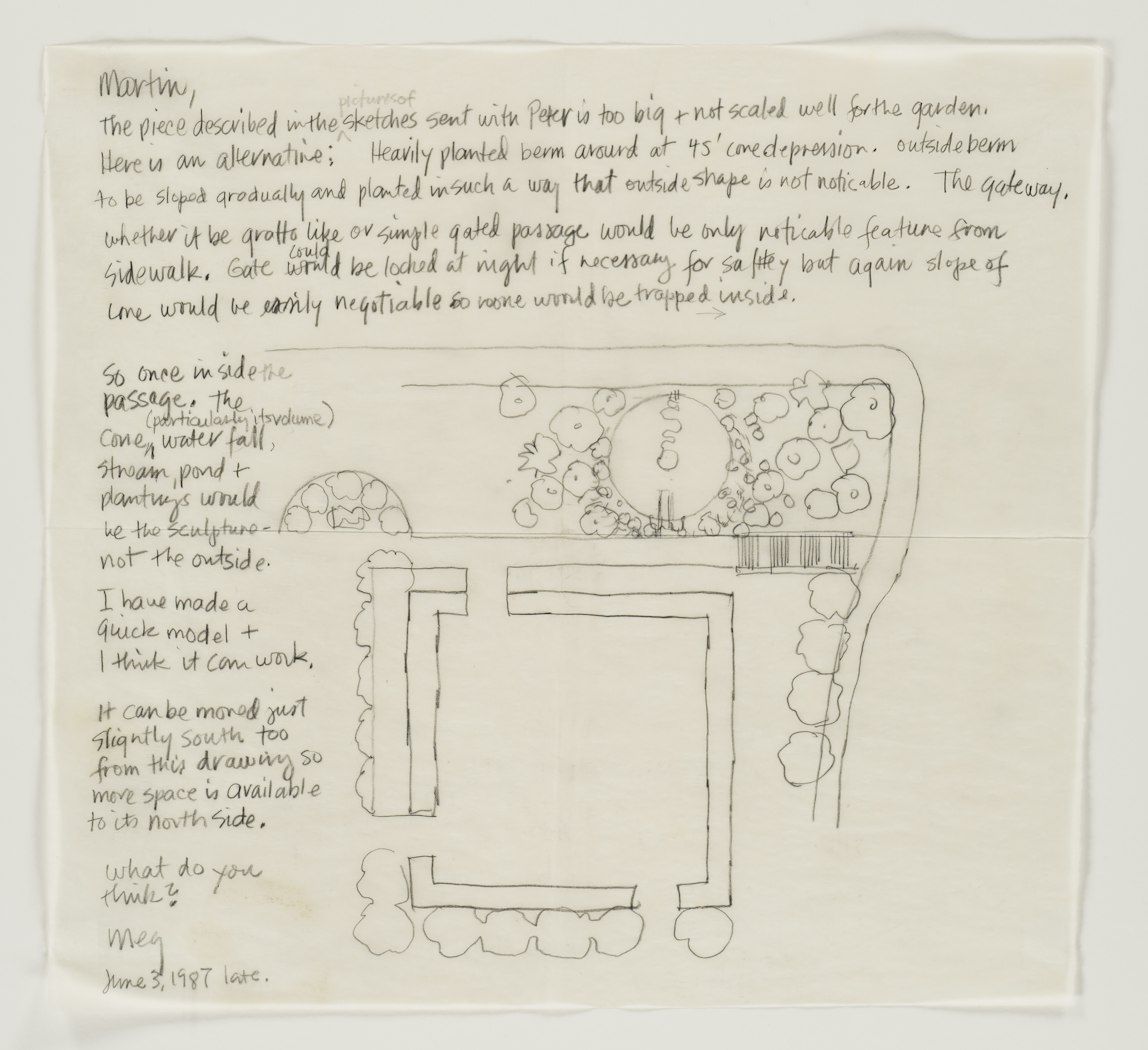 Martin,
pictures of
The piece described in the sketches sent with Peter is too big + not scaled well for the garden.
Here is an alternative: Heavily planted berm around at 45' cone depression. outside berm
to be sloped gradually and planted in such a way that outside shape is not noticable. The gateway,
whether it be grotto like or simple gated passage would be only noticable feature from
could
sidewalk. Gate would be locked at night if necessary for safety but again slope of
cone would be easily negotiable so noone would be trapped inside.
So once inside the
passage. the
(particularly its volume)
cone, water fall,
stream, pond +
plantings would
be the sculpture -
not the outside.
I have made a
quick model +
I think it can work.
It can be moved just
slightly south too
from this drawing so
more space is available
to its north side.
what do you
think?
Meg
June 3, 1987 late.